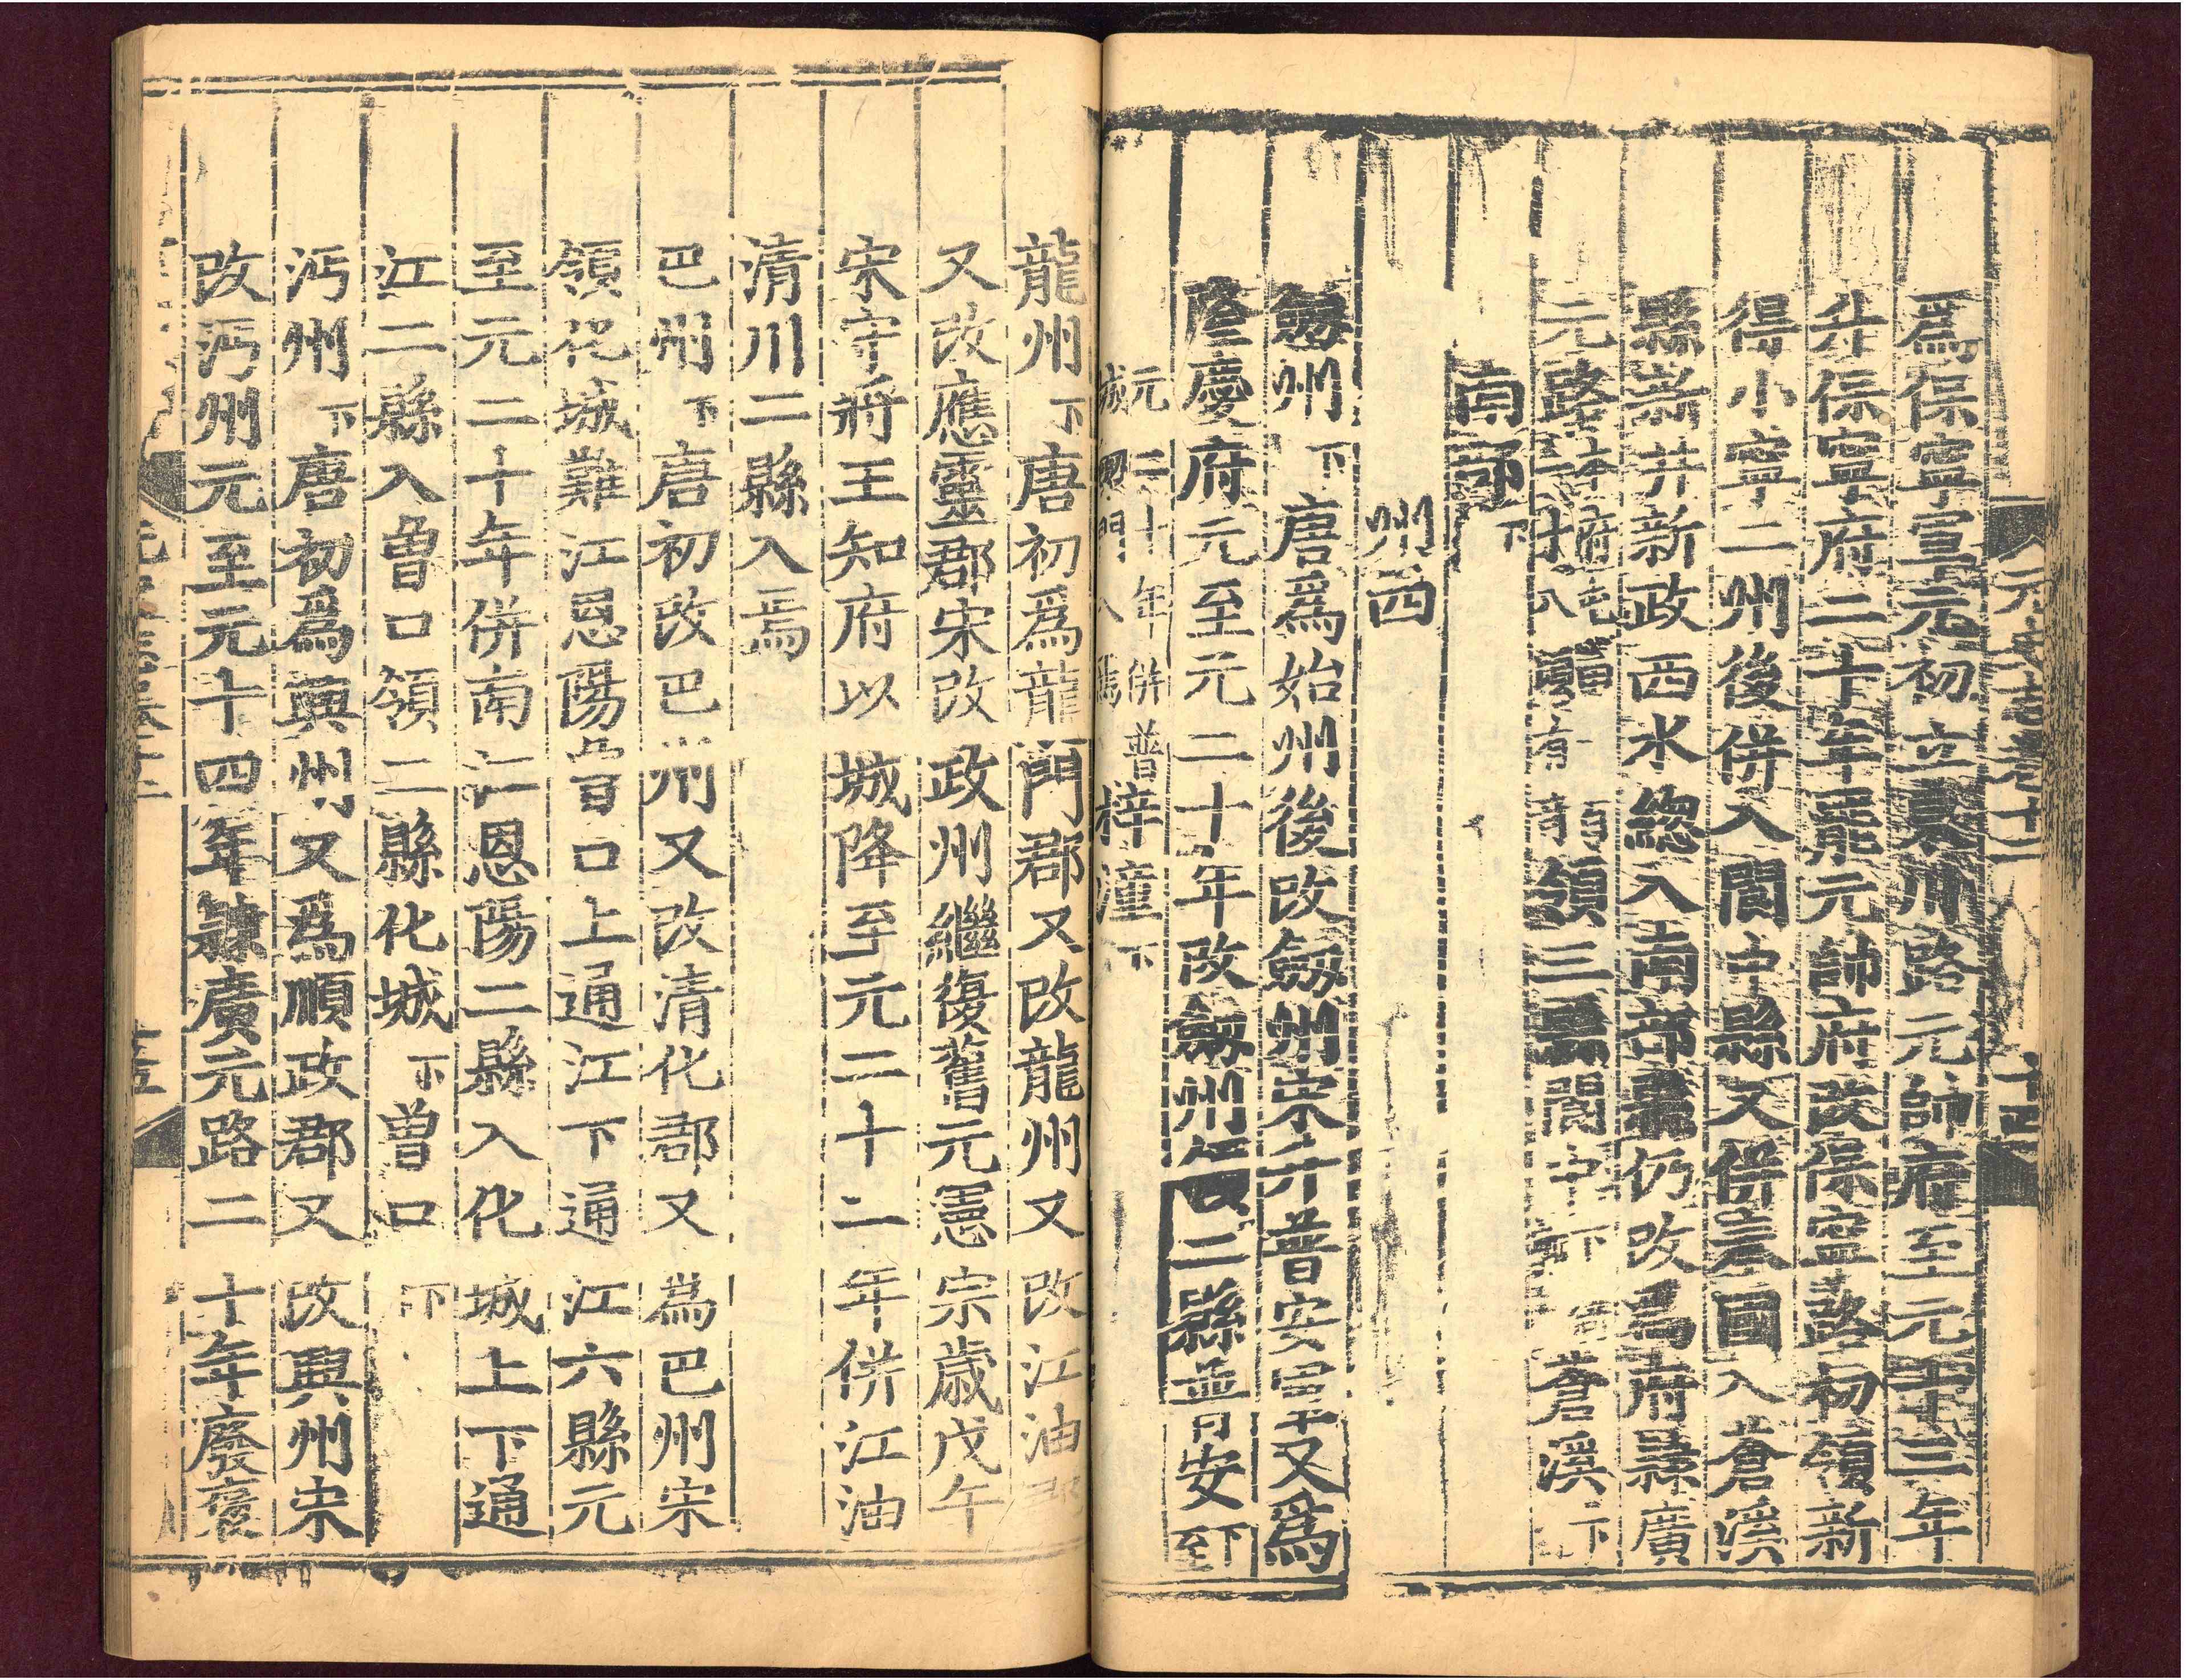 爲保寧宣元初立東川路元帥府至元十三年
升保寧府二十年罷元帥府改保寧路初領新
得小寧二州後併入閬中縣又併奉國入蒼溪
縣新井新政西水緫入南部縣仍改爲府隷廣
元路 領三縣閬中下 蒼溪下
南部下
州四
劔州下唐爲始州後改劔州宋升普安軍又爲
隆慶府元至元二十年改劔州 二縣普安下至
元二十年併普 梓潼下
龍州下唐初爲龍門郡又改龍州又改江油郡
又改應靈郡宋改政州繼復舊元憲宗歲戊午
宋守將王知府以城降至元二十二年併江油
清川二縣入焉
巴州下唐初改巴州又改清化郡又爲巴州宋
領化城難江恩陽曾口上通江下通江六縣元
至元二十年併南仁恩陽二縣入化城上下通
江二縣入曾口領二縣化城下曾口下
沔州下唐初爲興州又爲順政郡又改興州宋
改沔州元至元十四年隷廣元路二十年廢褒